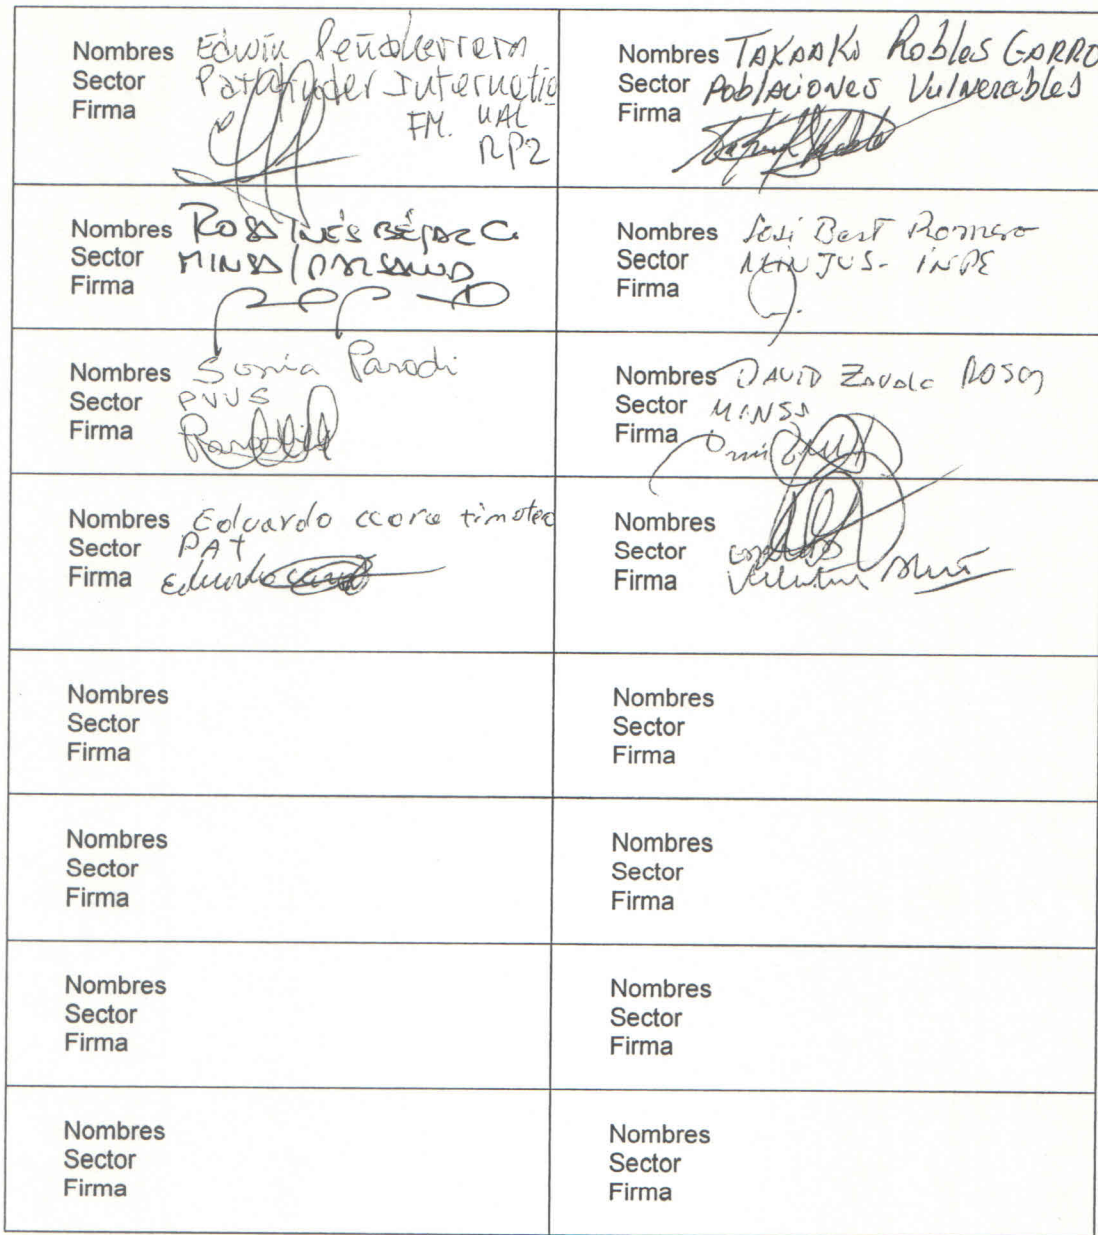 Nombres Edwin Peñaherrera
Sector Pathfinder Internatio
Firma FM. UAL
RP2
Nombres TAKAAKI Robles GARRO
Sector PoblAciones Vulnerables
Firma
Nombres ROSA INÉS BÉJAR C.
Sector MINSA / PARSALUD
Firma
Nombres José Best Romero
Sector MINJUS- INPE
Firma
Nombres Sonia Parodi
Sector PVVS
Firma
Nombres DAVID Zavala ROSAS
Sector MINSA
Firma
Nombres Eduardo ccora timoteo
Sector PAT
Firma Eduardo
Nombres
Sector
Firma
Nombres
Sector
Firma
Nombres
Sector
Firma
Nombres
Sector
Firma
Nombres
Sector
Firma
Nombres
Sector
Firma
Nombres
Sector
Firma
Nombres
Sector
Firma
Nombres
Sector
Firma